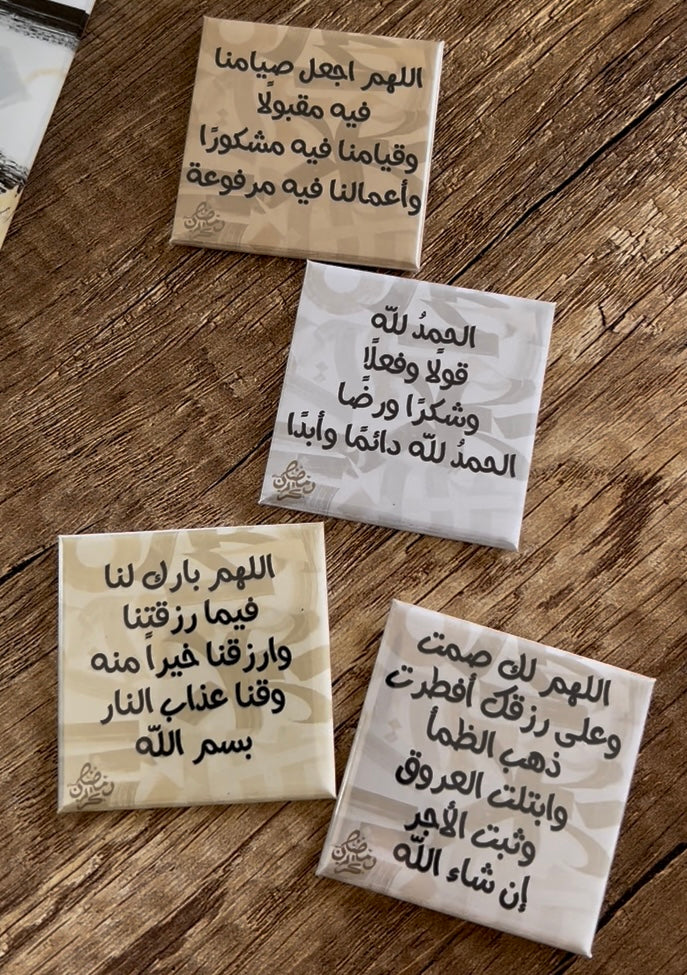 اللهم اجعل صيامنا
فيه مقبولًا
وقيامنا فيه مشكورًا
وأعمالنا فيه مرفوعة
الحمدُ للّه
قولًا وفعلًا
وشكرًا ورضًا
الحمدُ للّه دائمًا وأبدًا
اللهم بارك لنا
فيما رزقتنا
وارزقنا خيراً منه
وقنا عذاب النار
بسم اللّه
اللهم لك صمت
وعلى رزقك أفطرت
ذهب الظمأ
وابتلت العروق
وثبت الأجر
إن شاء اللّه